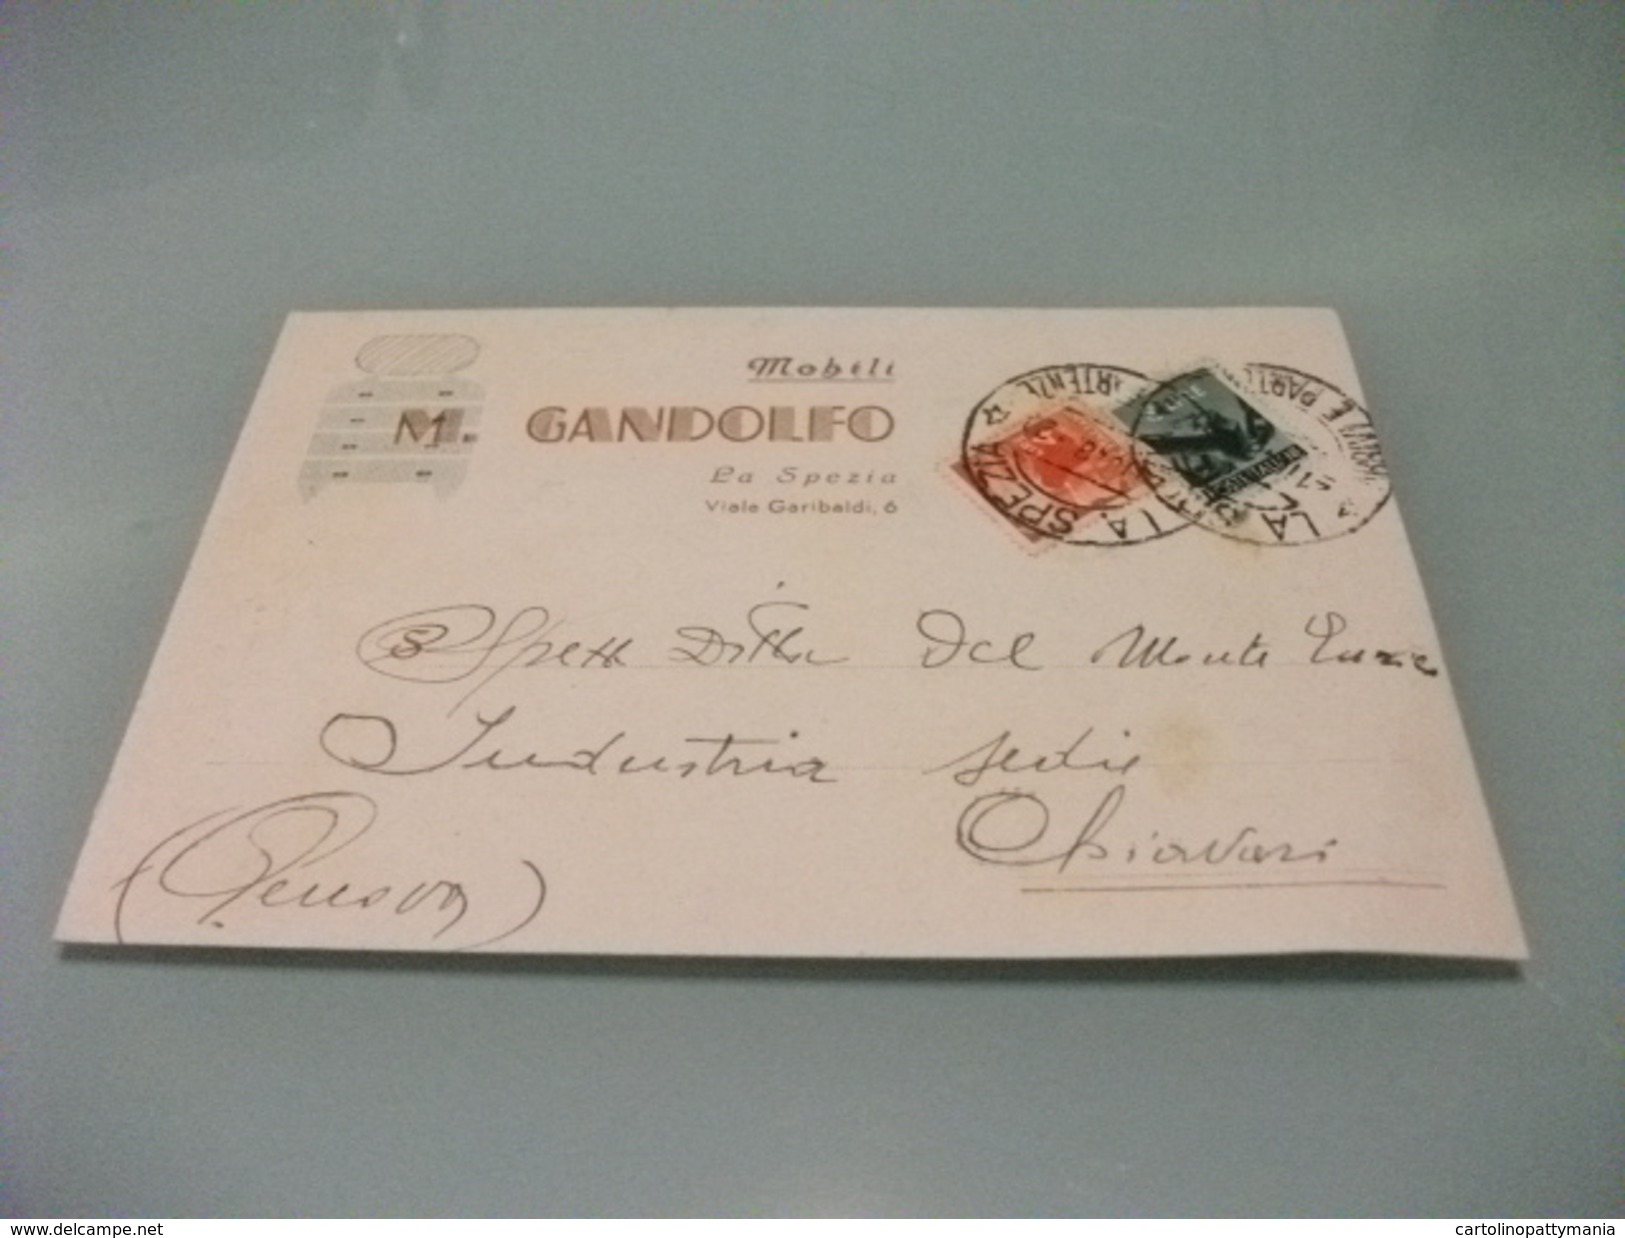 Mobili
M. GANDOLFO
La Spezia
Viale Garibaldi, 6
LA SPEZIA
ARRIVI E PARTENZE
LA
Spett Ditta Del Monte Enrico
Industria sedie
Chiavari
(Genova)
www.delcampe.net
cartolinopattymania